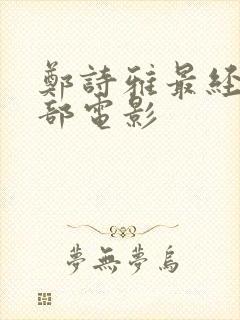 鄭詩雅最經
部電影
夢無夢鳥